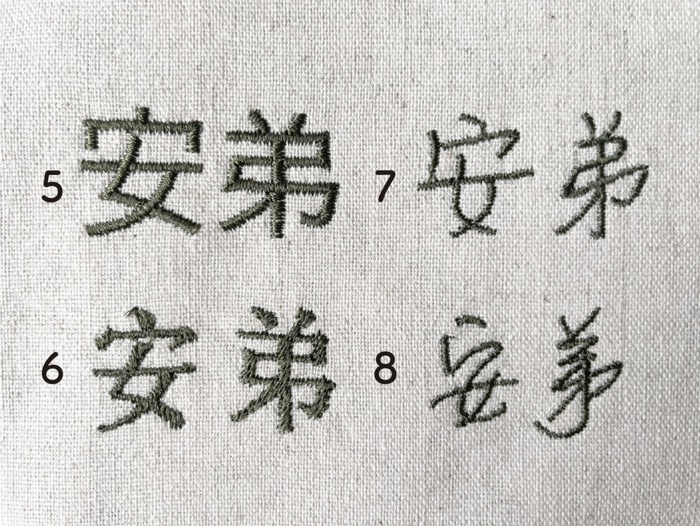 5 安弟 7 安弟
6 安弟 8 安弟